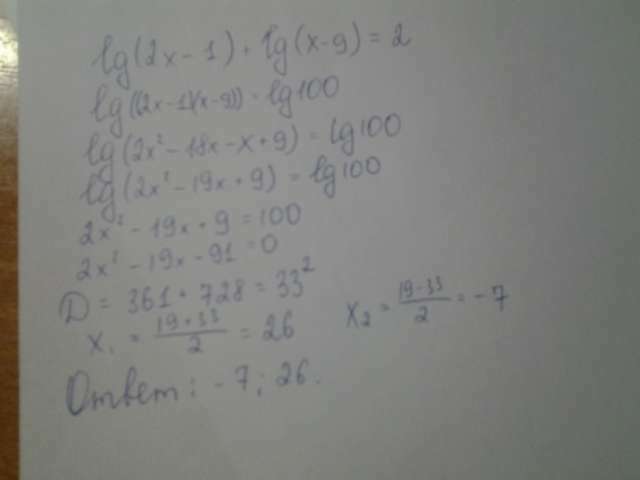 lg(2x-1)+lg(x-9)=2
lg((2x-1)(x-9))=lg100
lg(2x²-18x-x+9)=lg100
lg(2x²-19x+9)=lg100
2x²-19x+9=100
2x²-19x-91=0
D=361+728=33²
x₁=(19+33)/2=26 x₂=(19-33)/2=-7
Ответ: -7; 26.